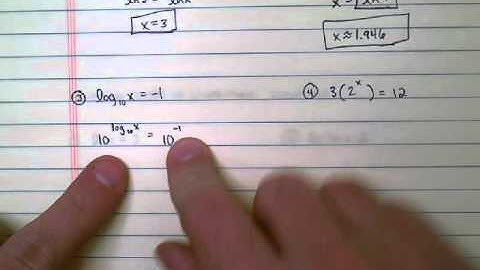 x = 3
x ≈ 1.946
③ log₁₀x = -1
④ 3(2ˣ) = 12
10^(log₁₀x) = 10⁻¹